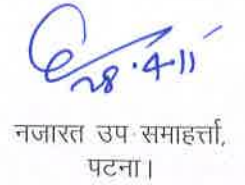 28.4.11
नजारत उप समाहर्त्ता,
पटना।